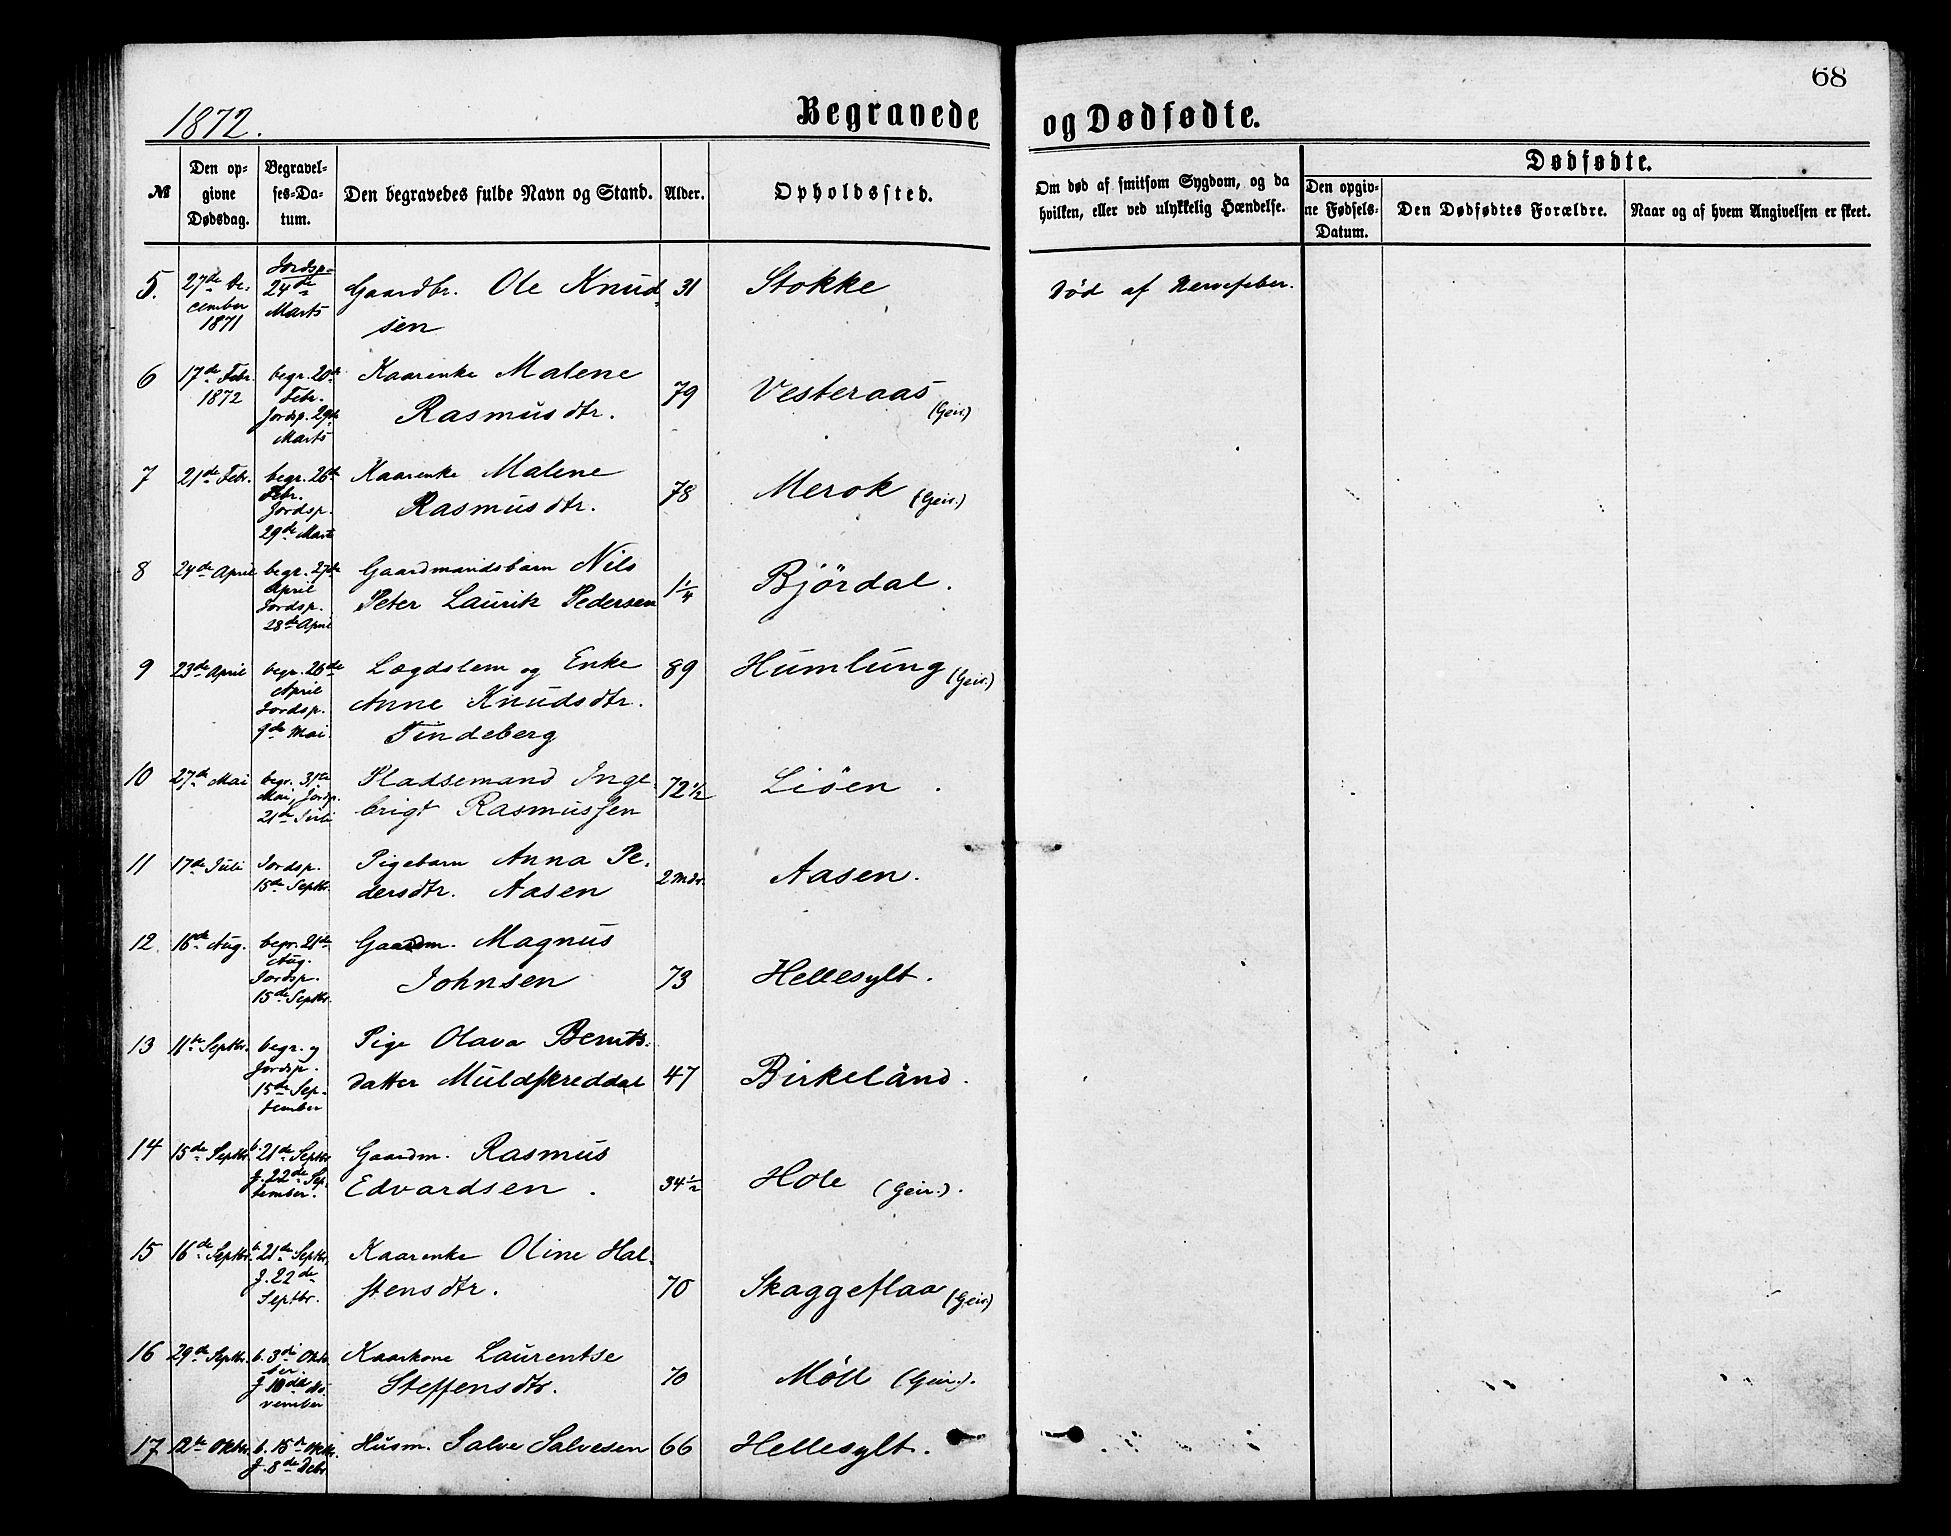 68
1872.
Begravede og Dødfødte.
№
Den op-
givne
Dødsdag.
Begravel-
ses-Da-
tum.
Den begravedes fulde Navn og Stand.
Alder.
Opholdssted.
Om død af smitsom Sygdom, og da
hvilken, eller ved ulykkelig Hændelse.
Dødfødte.
Den opgiv-
ne Fødsels-
Datum.
Den Dødfødtes Forældre.
Naar og af hvem Angivelsen er skeet.
5.
27de De-
cember
1871
Jordsp-
24de
Marts
Gaardbr. Ole Knud-
sen
31
Stokke
Død af Nervefeber.
6
17de Febr.
1872
begr. 20de
Febr.
Jordsp. 29de
Marts
Kaarenke Malene
Rasmusdtr.
79
Vesteraas
(Geir.)
7
21de Febr.
begr. 26de
Febr.
Jordsp.
29de Marts
Kaarenke Malene
Rasmusdtr.
78
Merok (Geir.)
8
24de April
begr. 27de
April
Jordsp.
28de April
Gaardmandsbarn Nils
Peter Laurik Pedersen
1 1/4
Björdal.
9
23de April
begr. 26de
April
Jordsp.
9de Mai.
Lægdslem og Enke
Anne Knudsdtr.
Tindeberg
89
Humlung (Geir.)
10
27de Mai
begr. 31te
Mai, Jordsp.
21de Juli
Pladsemand Inge-
brigt Rasmussen
72 1/2
Liöen.
11
17de Juli
Jordsp.
15de Septbr.
Pigebarn Anna Pe-
dersdtr. Aasen
2 Mdr.
Aasen.
12.
16de Aug.
begr. 21de
Aug.
Jordsp.
15de Septbr.
Gaardm. Magnus
Johnsen
73
Hellesylt.
13
11te Septbr.
begr. og
Jordsp.
15de Sep-
tember
Pige Olava Bernts-
datter Muldskreddal
47
Birkeland.
14
15de Septbr.
b. 21de Septbr.
J. 22de Sep-
tember.
Gaardm. Rasmus
Edvardsen.
34 1/2
Hole (Geir.).
15
16de Septbr.
b. 21de Septbr.
J. 22de
Septbr.
Kaarenke Oline Hal-
stensdtr.
70
Skaggeflaa (Geir.)
16
29de Septbr.
b. 3de Okto-
ber.
J. 10de No-
vember
Kaarkone Laurentse
Steffensdtr.
70
Möll (Geir.).
17
12te Oktbr.
b. 15de Oktbr.
J. 8de Debr.
Husm. Salve Salvesen
66
Hellesylt.